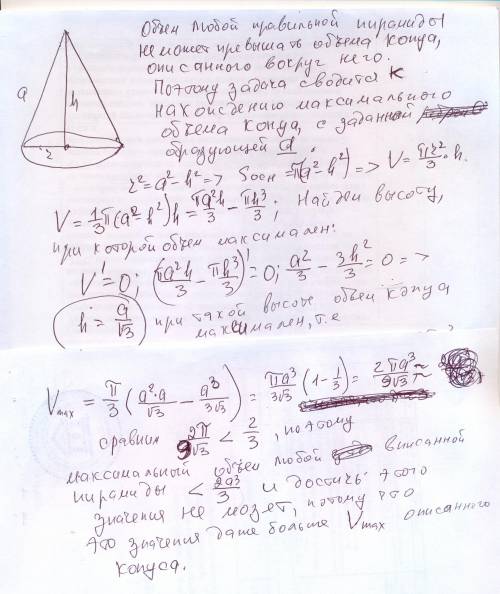 Объем любой правильной пирамиды
не может превышать объема конуса,
описанного вокруг него.
Поэтому задача сводится к
нахождению максимального
объема конуса, с заданной
образующей a.
a
h
r
r²=a²-h² => Sосн =π(a²-h²) => V = πr²/3 · h.
V = 1/3 π(a²-h²)h = πa²h/3 - πh³/3; Найдем высоту,
при которой объем максимален:
V' = 0; (πa²h/3 - πh³/3)' = 0; a²/3 - 3h²/3 = 0 =>
h = a/√3 при такой высоте объем конуса
максимален, т.е
Vmax = π/3 (a²·a/√3 - a³/3√3) = πa³/3√3 (1 - 1/3) = 2πa³/9√3 ≈
сравним 2π/9√3 < 2/3, поэтому
максимальный объем любой вписанной
пирамиды < 2a³/3 и достичь этого
значения не может, потому что
это значения даже больше Vmax описанного
конуса.